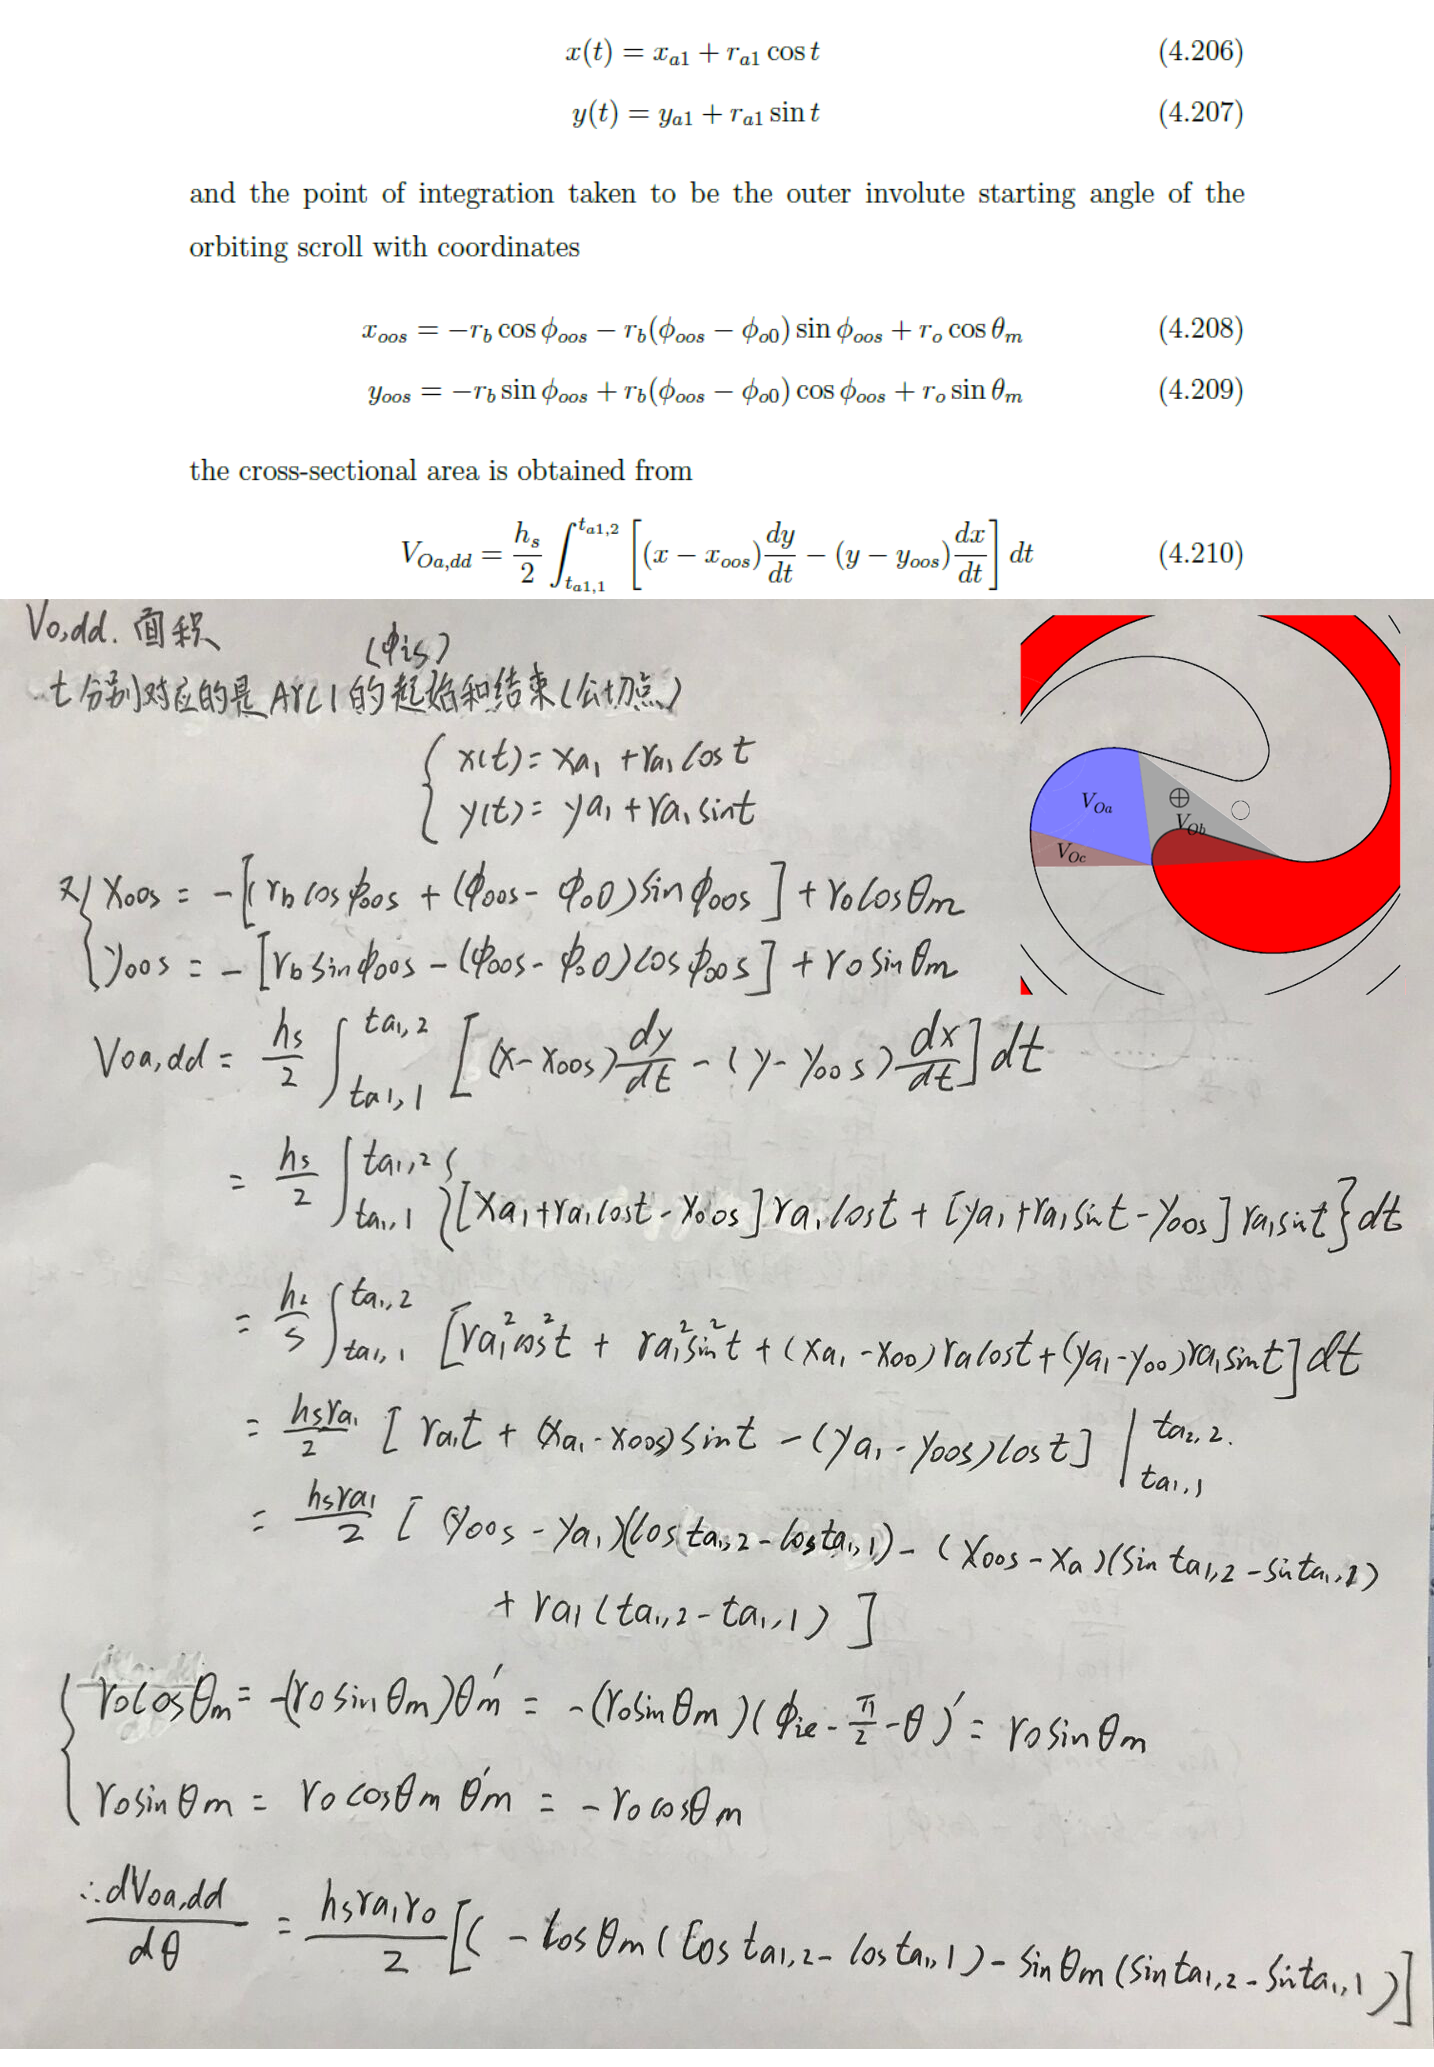 x(t) = x_{a1} + r_{a1} cos t (4.206)
y(t) = y_{a1} + r_{a1} sin t (4.207)
and the point of integration taken to be the outer involute starting angle of the
orbiting scroll with coordinates
x_{oos} = −r_b cos ϕ_{oos} − r_b(ϕ_{oos} − ϕ_{o0}) sin ϕ_{oos} + r_o cos θ_m (4.208)
y_{oos} = −r_b sin ϕ_{oos} + r_b(ϕ_{oos} − ϕ_{o0}) cos ϕ_{oos} + r_o sin θ_m (4.209)
the cross-sectional area is obtained from
V_{Oa,dd} = h_s/2 ∫_{t_{a1,1}}^{t_{a1,2}} [(x − x_{oos}) dy/dt − (y − y_{oos}) dx/dt] dt (4.210)
Vo,dd. 面积
(ϕis)
t分别对应的是Arc1的起始和结束(公切点)
x(t) = xa1 + ra1 cos t
y(t) = ya1 + ra1 sin t
V_{Oa}
V_{Ob}
V_{Oc}
又 xoos = -[(rb cos ϕoos + (ϕoos - ϕo0) sin ϕoos] + ro cos θm
yoos = -[rb sin ϕoos - (ϕoos - ϕo0) cos ϕoos] + ro sin θm
Voa,dd = hs/2 ∫_{ta1,1}^{ta1,2} [(x - xoos) dy/dt - (y - yoos) dx/dt] dt
= hs/2 ∫_{ta1,1}^{ta1,2} {[xa1 + ra1 cos t - xoos] ra1 cos t + [ya1 + ra1 sin t - yoos] ra1 sin t} dt
= hs/s ∫_{ta1,1}^{ta1,2} [ra1² cos² t + ra1² sin² t + (xa1 - xoo) ra cos t + (ya1 - yoo) ra1 sin t] dt
= hs ra1/2 [ra1 t + (xa1 - xoos) sin t - (ya1 - yoos) cos t] |_{ta1,1}^{ta2,2.}
= hs ra1/2 [(yoos - ya1)(cos ta1,2 - cos ta1,1) - (xoos - xa)(sin ta1,2 - sin ta1,1)
+ ra1 (ta1,2 - ta1,1)]
ro cos θm = -(ro sin θm) θm′ = -(ro sin θm)(ϕie - π/2 - θ)′ = ro sin θm
ro sin θm = ro cos θm θm′ = - ro cos θm
∴ dVoa,dd/dθ = hs ra1 ro/2 [( - cos θm (cos ta1,2 - cos ta1,1) - sin θm (sin ta1,2 - sin ta1,1)]